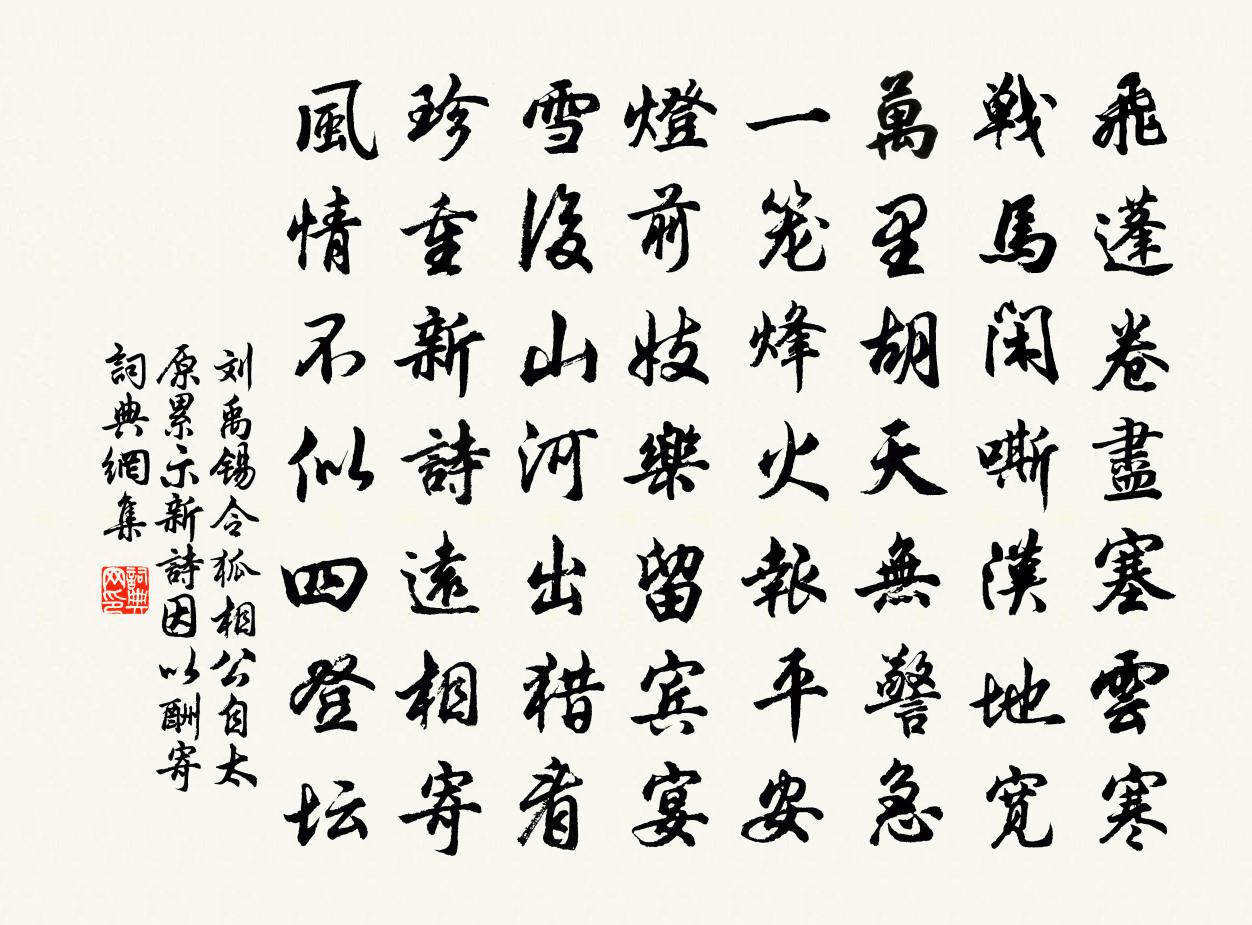 飛蓬卷盡塞雲寒
戦馬闲嘶漢地宽
萬里胡天無警急
一笼烽火報平安
燈前妓樂留宾宴
雪後山河出猎看
珍重新詩遠相寄
風情不似四登坛
刘禹锡令狐相公自太
原累示新詩因以酬寄
詞典網集
詞典
网印